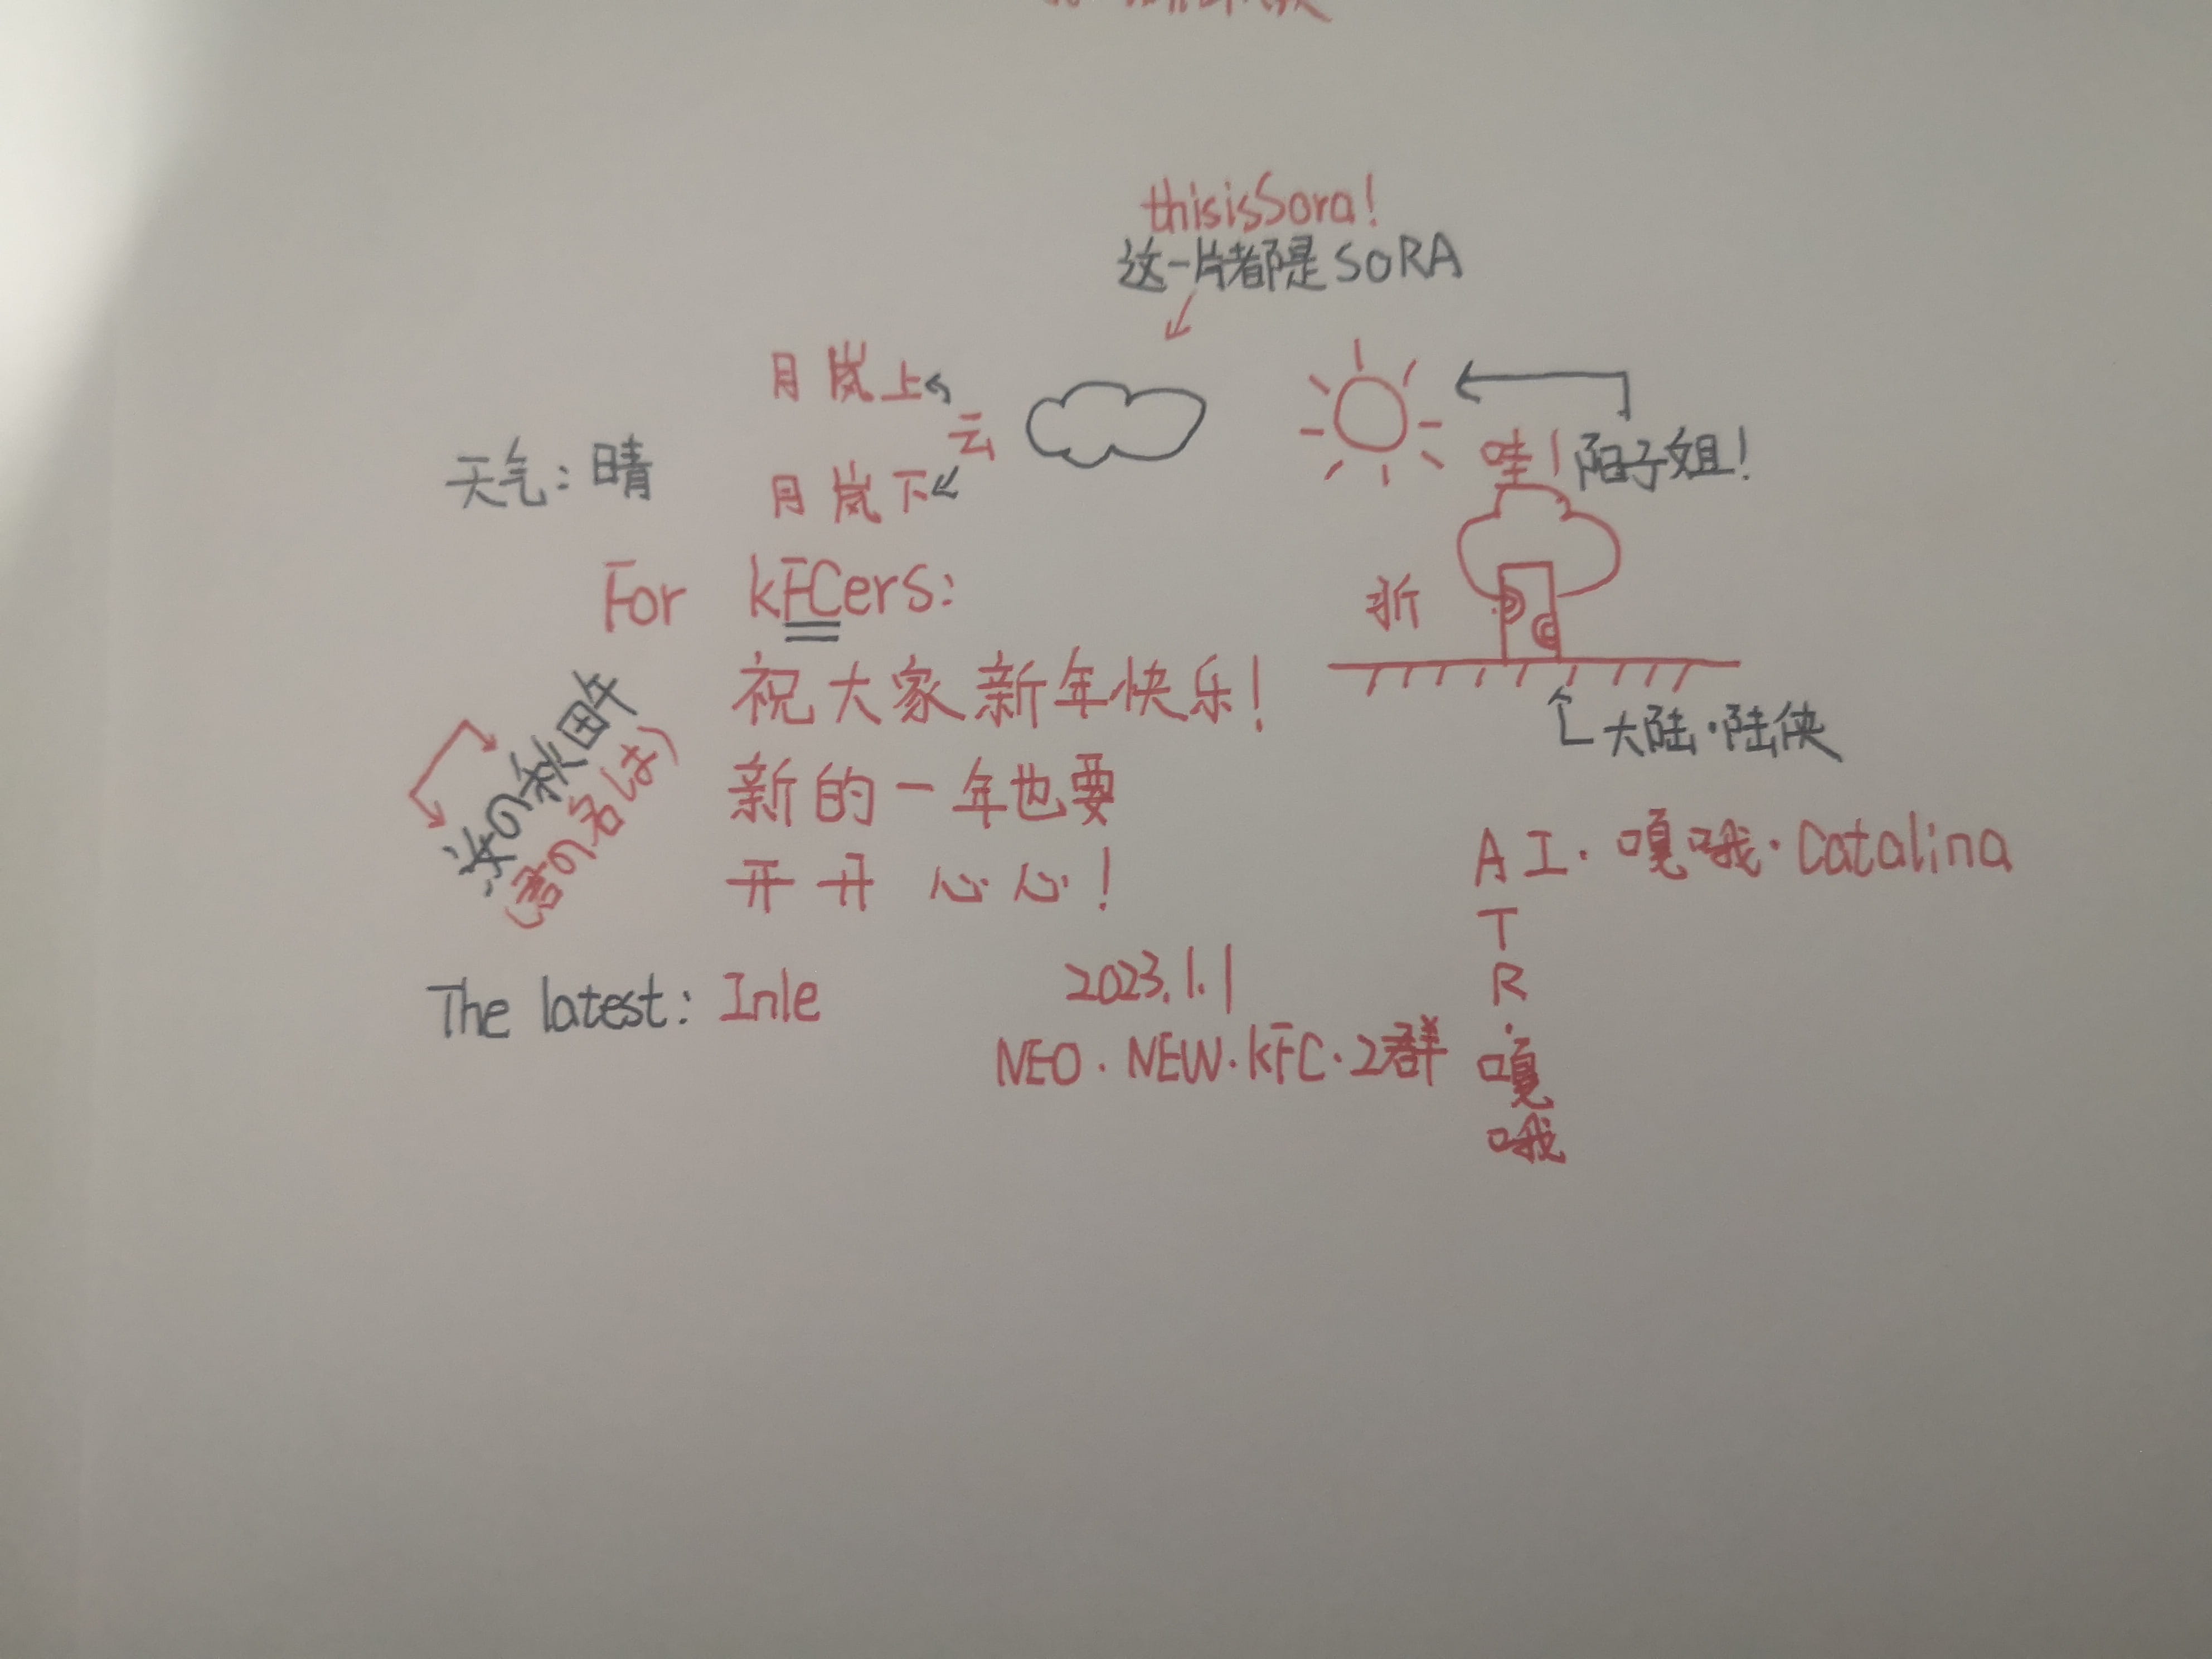 thisisSora!
这一片都是SORA
月岚上
云
月岚下
天气：晴
哇！阳子姐！
For kFCers:
折
祝大家新年快乐！
大陆·陆侠
新的一年也要
开开心心！
(君の名は)
AI·嘎哦·Catalina
T
R
·
嘎
哦
The latest: Inle
2023.1.1
NEO·NEW·kFC·2群